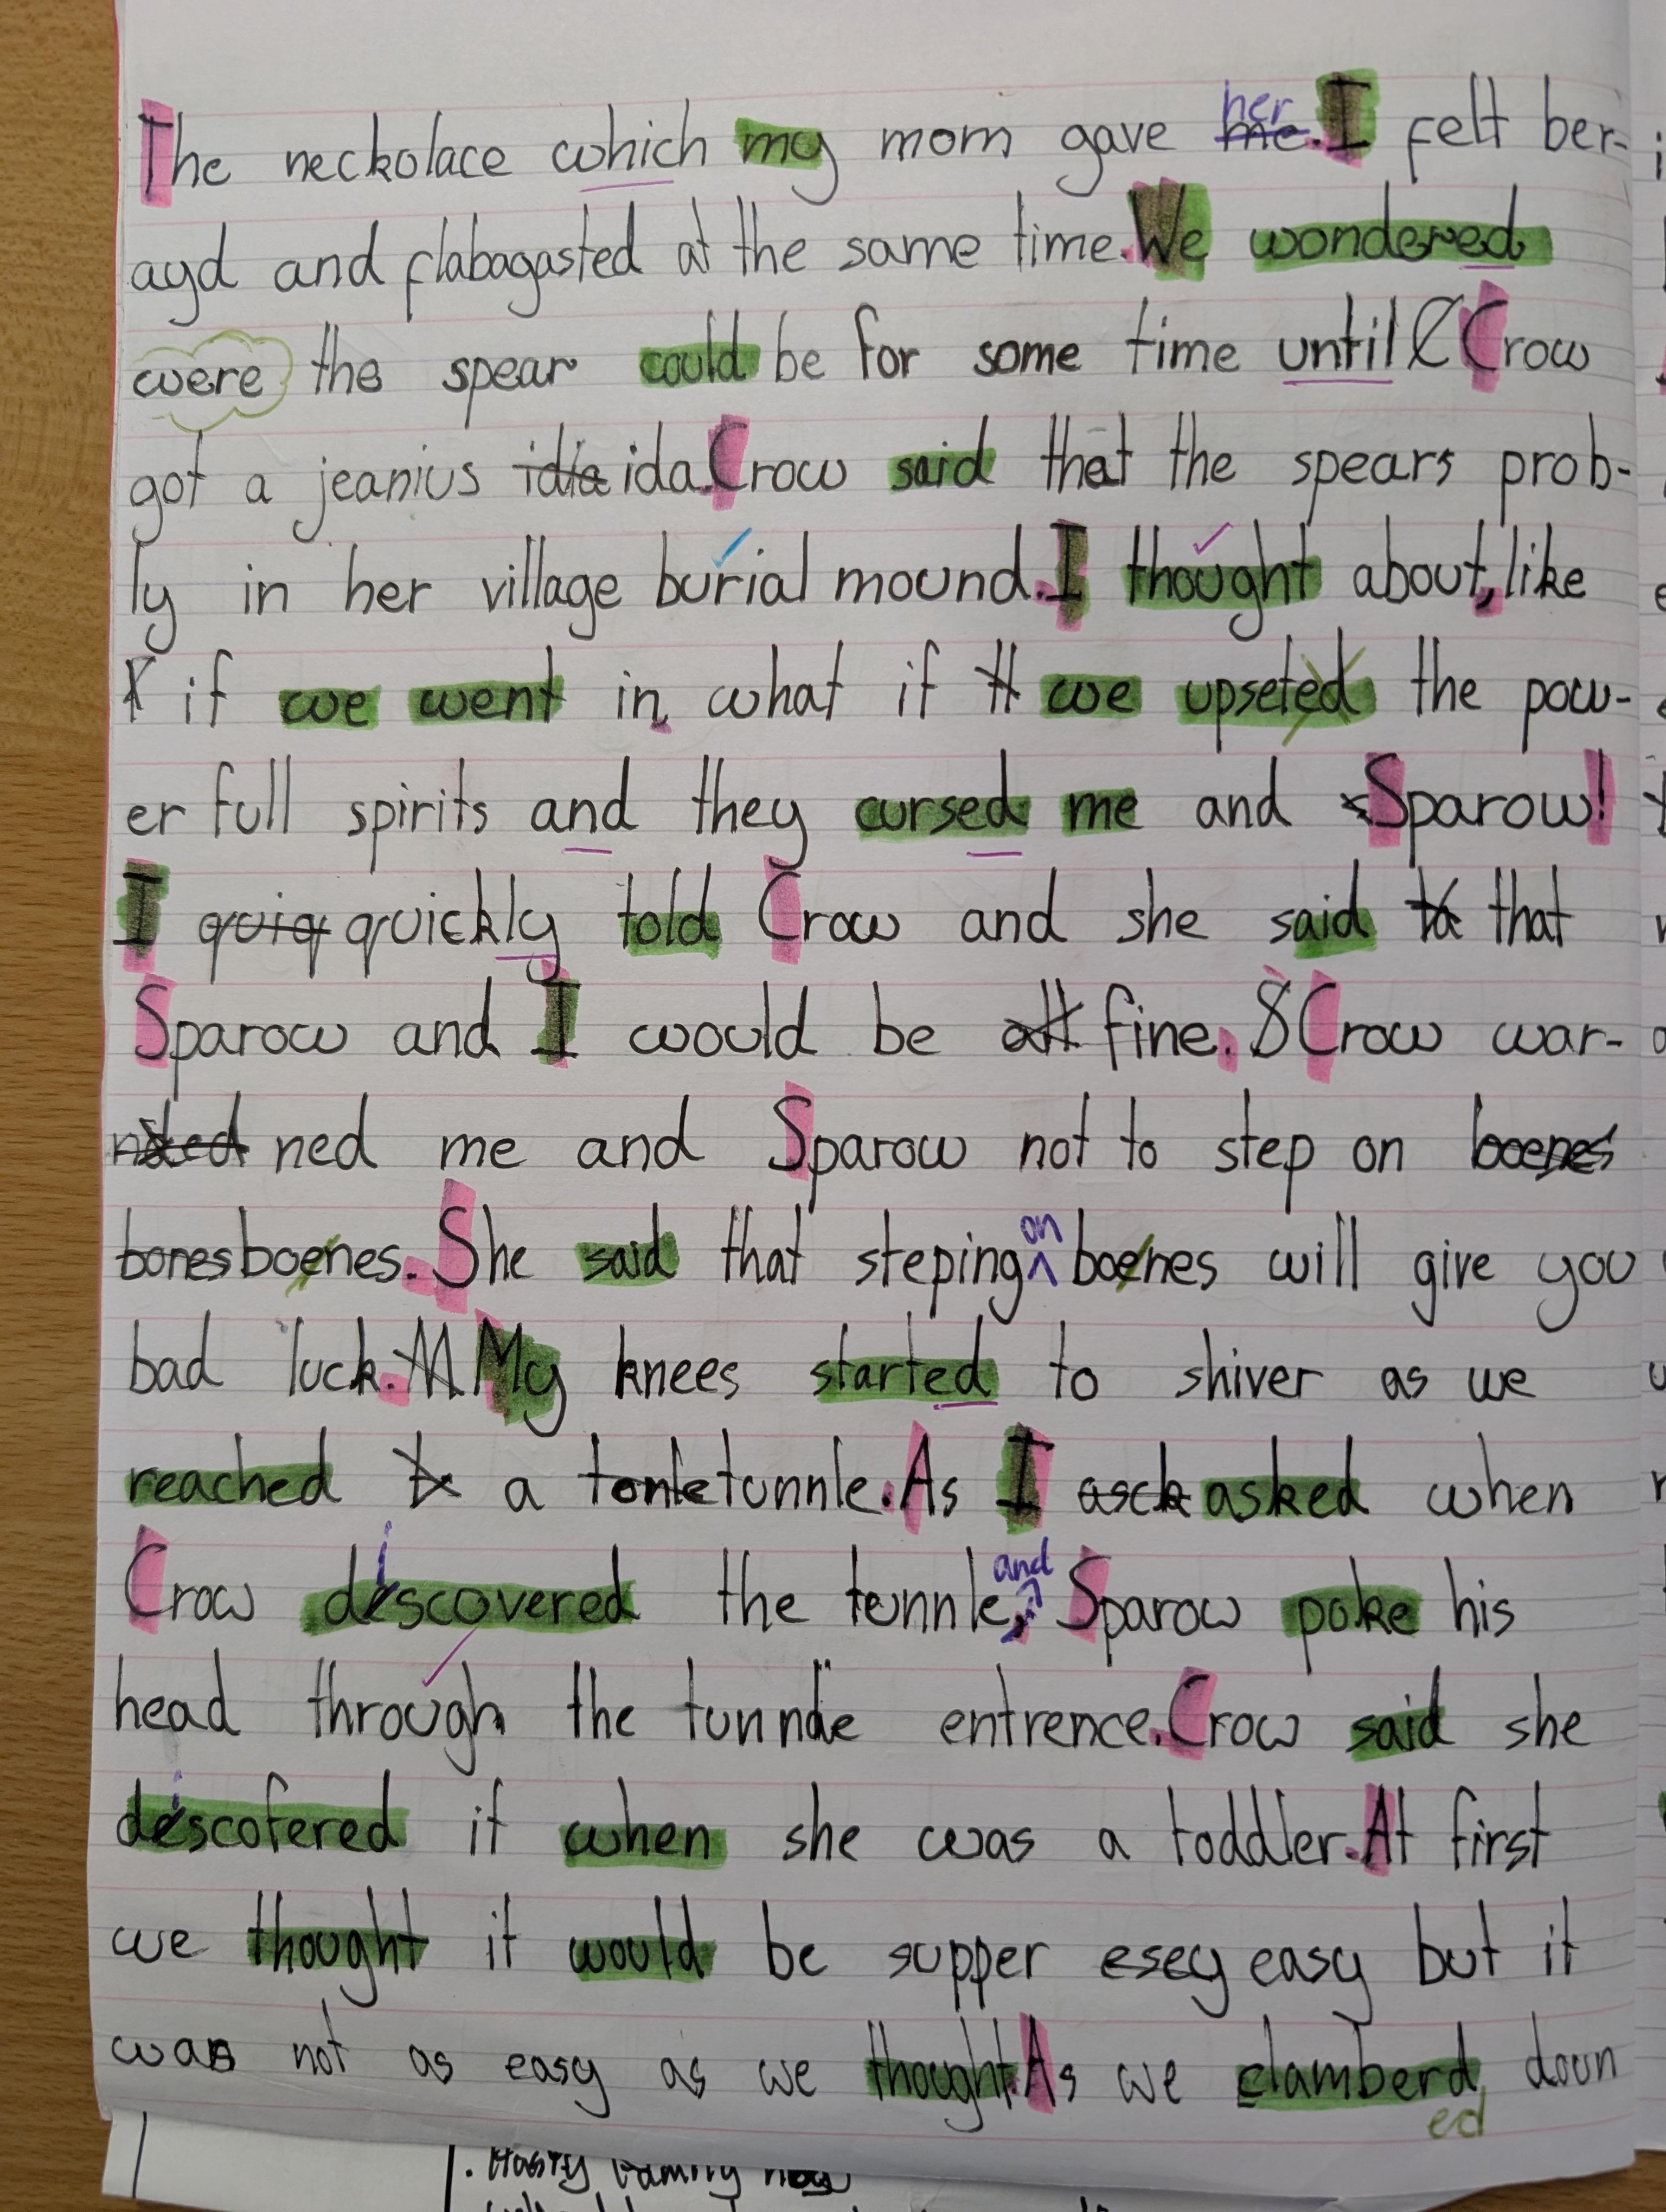 The neckolace which my mom gave me. her I felt ber-
ayd and flabagasted at the same time. We wondered
were the spear could be for some time until C Crow
got a jeanius idia ida. Crow said that the spears prob-
ly in her village burial mound. I thought about, like
if we went in, what if tt we upseted the pow-
er full spirits and they cursed me and Sparow!
I quiq quickly told Crow and she said ta that
Sparow and I would be alt fine. S Crow war-
ned me and Sparow not to step on boenes
bones boenes. She said that steping on boenes will give you
bad luck. M My knees started to shiver as we
reached t a tonle tunnle. As I asck asked when
Crow discovered the tunnle, and Sparow poke his
head through the tunnle entrence. Crow said she
discofered it when she was a toddler. At first
we thought it would be supper esey easy but it
was not as easy as we thought. As we clamberd down
ed